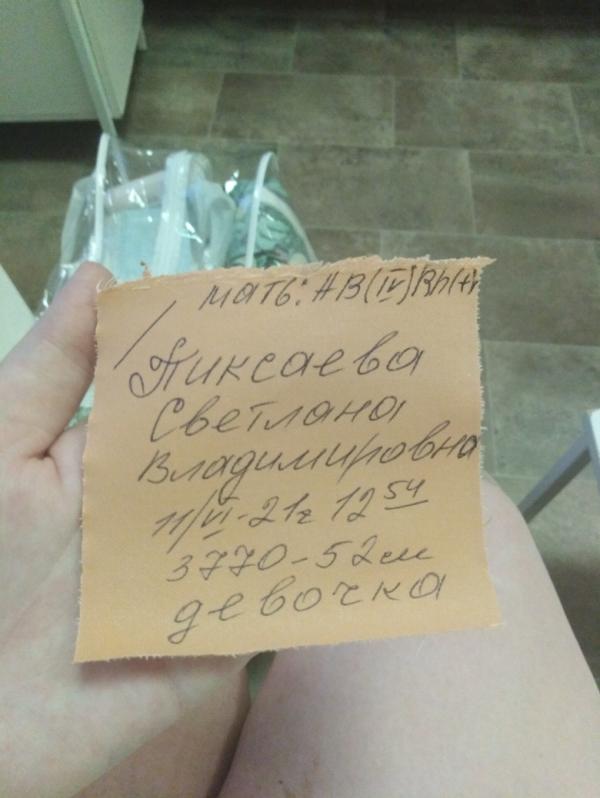 мать: AB(IV)Rh(+)
Пиксаева
Светлана
Владимировна
11/VI-21г 12 54
3770-52см
девочка